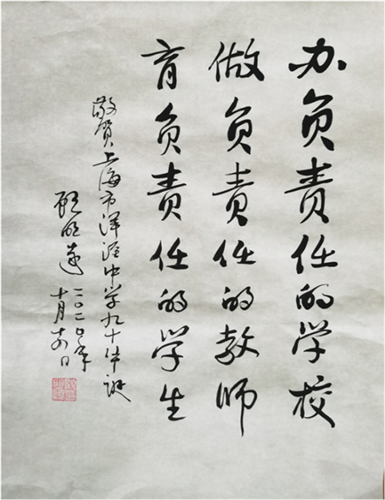 办负责任的学校
做负责任的教师
育负责任的学生
敬贺上海市洋泾中学九十华诞
顾明远
二〇二〇年
十月十六日